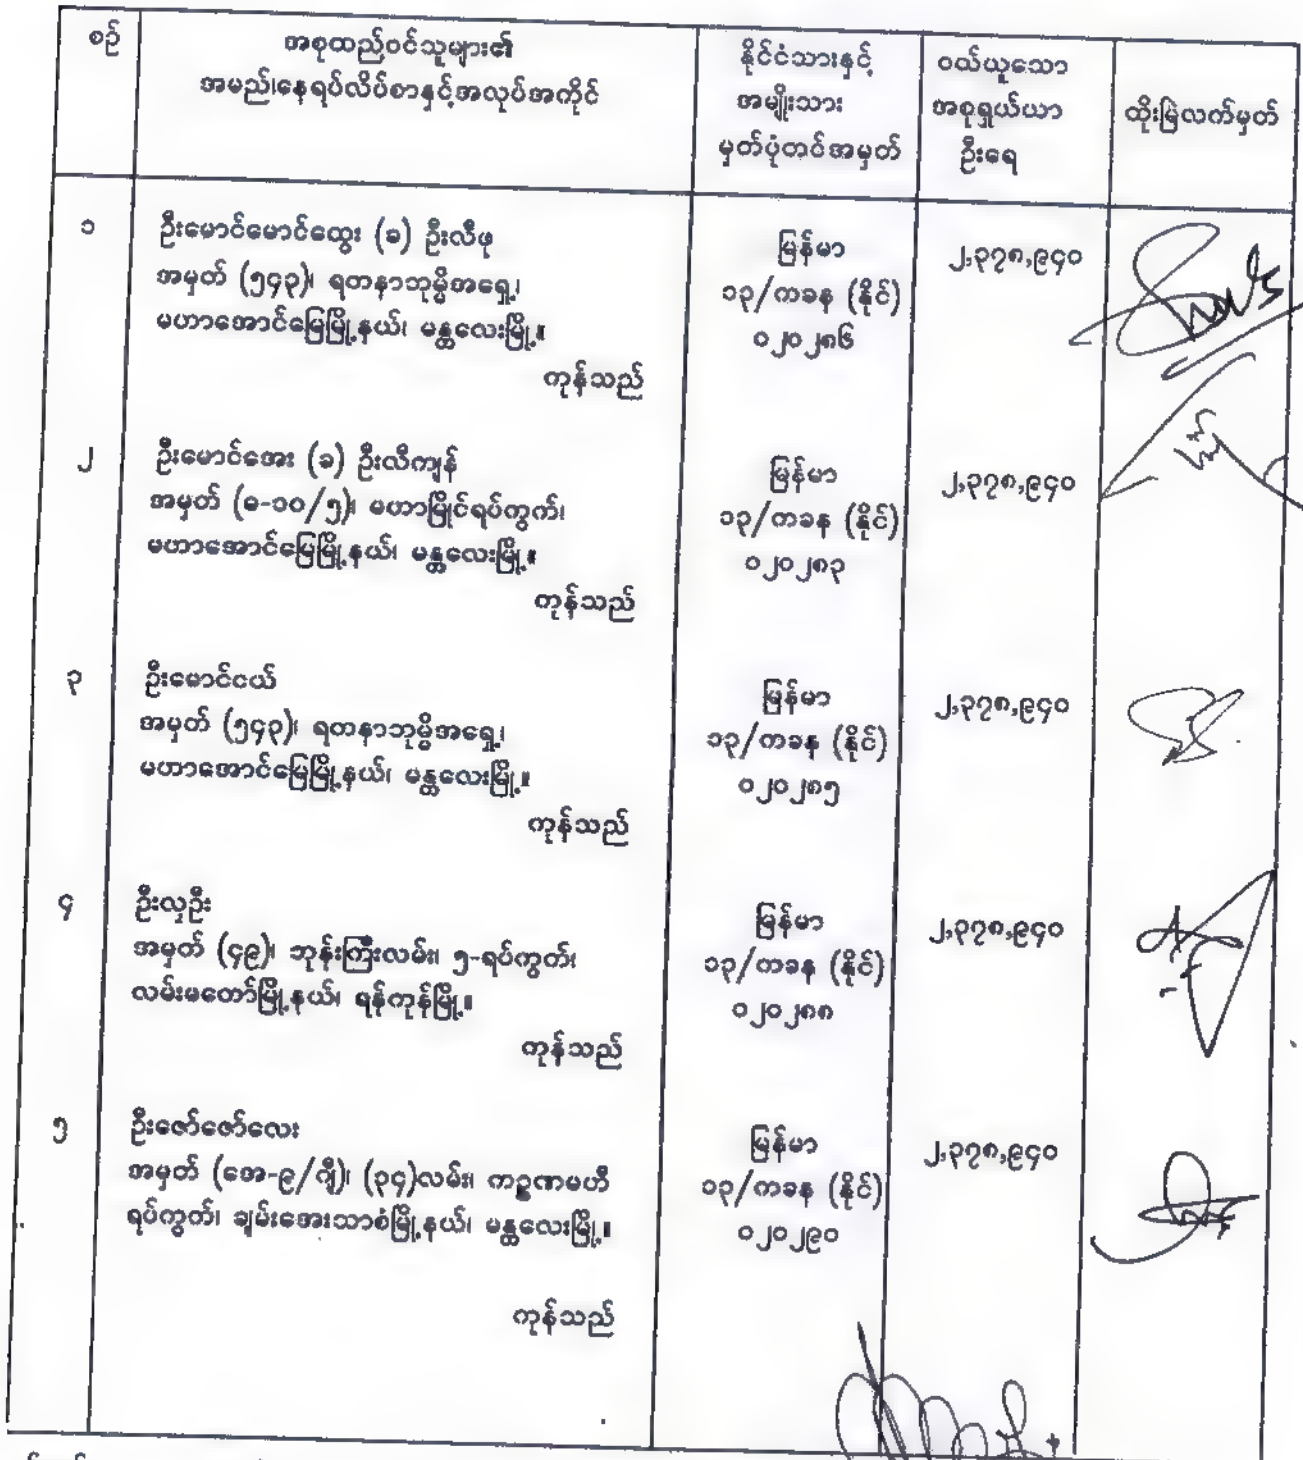 စဉ်
အစုထည့်ဝင်သူများ၏
အမည်၊နေရပ်လိပ်စာနှင့်အလုပ်အကိုင်
နိုင်ငံသားနှင့်
အမျိုးသား
မှတ်ပုံတင်အမှတ်
ဝယ်ယူသော
အစုရှယ်ယာ
ဦးရေ
ထိုးမြဲလက်မှတ်
၁
ဦးမောင်မောင်ထွေး (ခ) ဦးလီဖု
အမှတ် (၅၄၃)၊ ရတနာဘုမ္မိအရှေ့၊
မဟာအောင်မြေမြို့နယ်၊ မန္တလေးမြို့။
ကုန်သည်
မြန်မာ
၁၃/ကခန (နိုင်)
၀၂၀၂၈၆
၂,၃၇၈,၉၄၀
၂
ဦးမောင်အေး (ခ) ဦးလီကျန်
အမှတ် (ခ-၁၀/၅)၊ မဟာမြိုင်ရပ်ကွက်၊
မဟာအောင်မြေမြို့နယ်၊ မန္တလေးမြို့။
ကုန်သည်
မြန်မာ
၁၃/ကခန (နိုင်)
၀၂၀၂၈၃
၂,၃၇၈,၉၄၀
၃
ဦးမောင်ငယ်
အမှတ် (၅၄၃)၊ ရတနာဘုမ္မိအရှေ့၊
မဟာအောင်မြေမြို့နယ်၊ မန္တလေးမြို့။
ကုန်သည်
မြန်မာ
၁၃/ကခန (နိုင်)
၀၂၀၂၈၅
၂,၃၇၈,၉၄၀
၄
ဦးလှဦး
အမှတ် (၄၉)၊ ဘုန်းကြီးလမ်း၊ ၅-ရပ်ကွက်၊
လမ်းမတော်မြို့နယ်၊ ရန်ကုန်မြို့။
ကုန်သည်
မြန်မာ
၁၃/ကခန (နိုင်)
၀၂၀၂၈၈
၂,၃၇၈,၉၄၀
၅
ဦးဇော်ဇော်လေး
အမှတ် (အေ-၉/ဂျီ)၊ (၃၄)လမ်း၊ ကဉ္စဏမဟီ
ရပ်ကွက်၊ ချမ်းအေးသာစံမြို့နယ်၊ မန္တလေးမြို့။
ကုန်သည်
မြန်မာ
၁၃/ကခန (နိုင်)
၀၂၀၂၉၀
၂,၃၇၈,၉၄၀